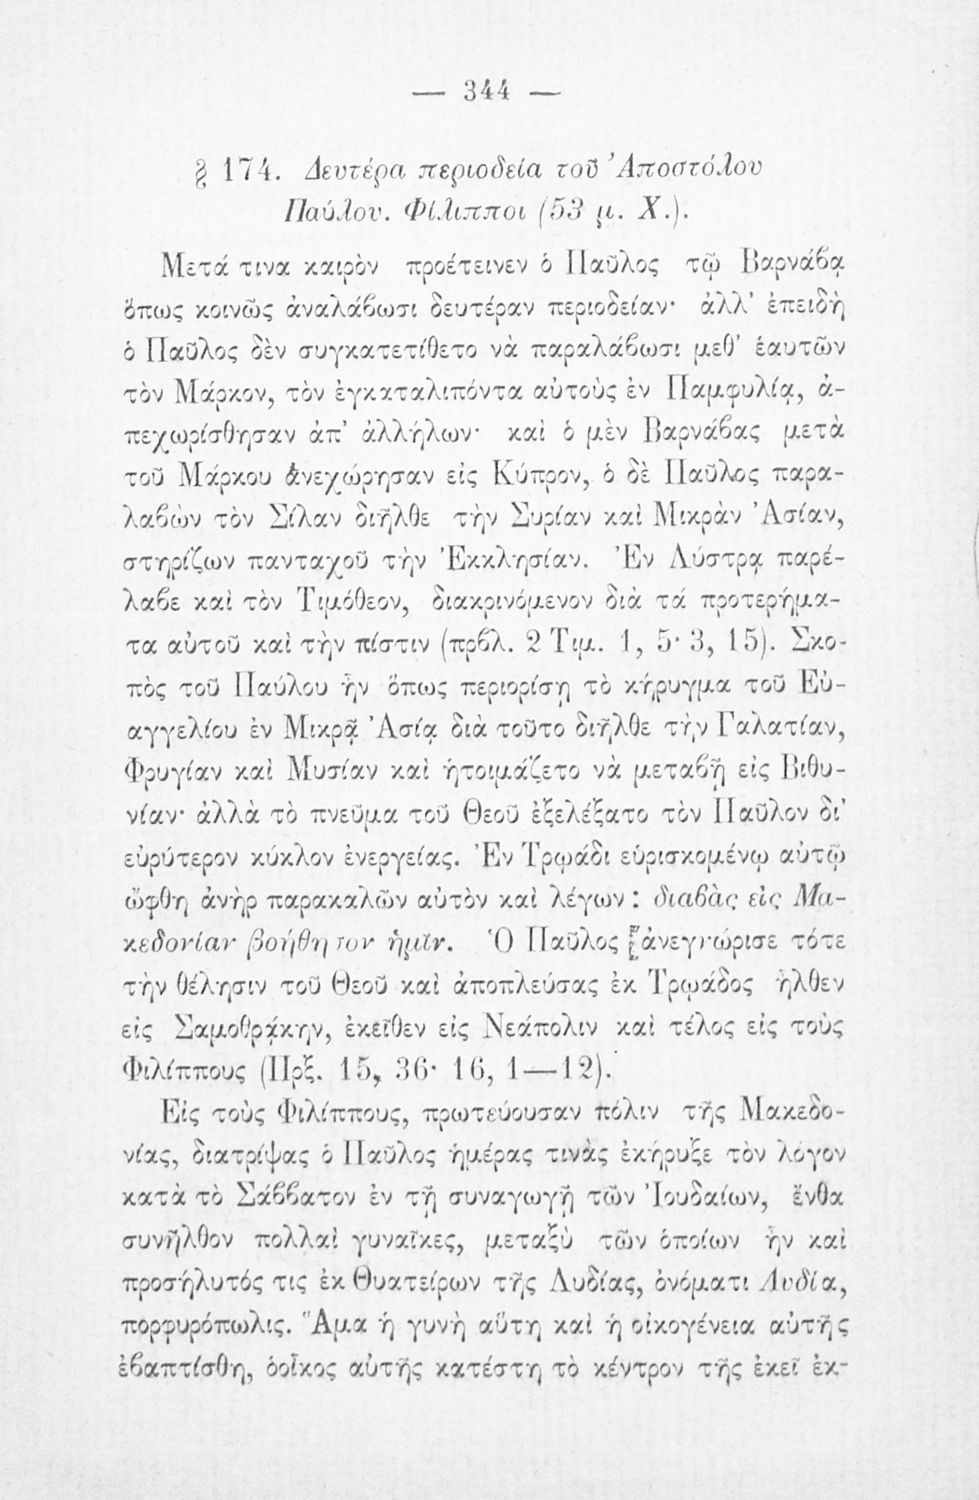 — 344 —
§ 174. Δευτέρα περιοδεία τοῦ Ἀποστόλου
Παύλου. Φίλιπποι (53 μ. Χ.).
Μετά τινα καιρὸν προέτεινεν ὁ Παῦλος τῷ Βαρνάβᾳ
ὅπως κοινῶς ἀναλάβωσι δευτέραν περιοδείαν· ἀλλ' ἐπειδὴ
ὁ Παῦλος δὲν συγκατετίθετο νὰ παραλάβωσι μεθ' ἑαυτῶν
τὸν Μάρκον, τὸν ἐγκαταλιπόντα αὐτοὺς ἐν Παμφυλίᾳ, ἀ-
πεχωρίσθησαν ἀπ' ἀλλήλων· καὶ ὁ μὲν Βαρνάβας μετὰ
τοῦ Μάρκου ἀνεχώρησαν εἰς Κύπρον, ὁ δὲ Παῦλος παρα-
λαβὼν τὸν Σίλαν διῆλθε τὴν Συρίαν καὶ Μικρὰν Ἀσίαν,
στηρίζων πανταχοῦ τὴν Ἐκκλησίαν. Ἐν Λύστρᾳ παρέ-
λαβε καὶ τὸν Τιμόθεον, διακρινόμενον διὰ τά προτερήμα-
τα αὐτοῦ καὶ τὴν πίστιν (πρβλ. 2 Τιμ. 1, 5· 3, 15). Σκο-
πὸς τοῦ Παύλου ἦν ὅπως περιορίσῃ τὸ κήρυγμα τοῦ Εὐ-
αγγελίου ἐν Μικρᾷ Ἀσίᾳ διὰ τοῦτο διῆλθε τὴν Γαλατίαν,
Φρυγίαν καὶ Μυσίαν καὶ ἡτοιμάζετο νὰ μεταβῇ εἰς Βιθυ-
νίαν· ἀλλὰ τὸ πνεῦμα τοῦ Θεοῦ ἐξελέξατο τὸν Παῦλον δι'
εὐρύτερον κύκλον ἐνεργείας. Ἐν Τρῳάδι εὑρισκομένῳ αὐτῷ
ὤφθη ἀνὴρ παρακαλῶν αὐτὸν καὶ λέγων: διαβὰς εἰς Μα-
κεδονίαν βοήθησον ἡμῖν. Ὁ Παῦλος ἀνεγνώρισε τότε
τὴν θέλησιν τοῦ Θεοῦ καὶ ἀποπλεύσας ἐκ Τρῳάδος ἦλθεν
εἰς Σαμοθρᾴκην, ἐκεῖθεν εἰς Νεάπολιν καὶ τέλος εἰς τοὺς
Φιλίππους (Πρξ. 15, 36· 16, 1—12).
Εἰς τοὺς Φιλίππους, πρωτεύουσαν πόλιν τῆς Μακεδο-
νίας, διατρίψας ὁ Παῦλος ἡμέρας τινὰς ἐκήρυξε τὸν λόγον
κατὰ τὸ Σάββατον ἐν τῇ συναγωγῇ τῶν Ἰουδαίων, ἔνθα
συνῆλθον πολλαὶ γυναῖκες, μεταξὺ τῶν ὁποίων ἦν καὶ
προσήλυτός τις ἐκ Θυατείρων τῆς Λυδίας, ὀνόματι Λυδία,
πορφυρόπωλις. Ἅμα ἡ γυνὴ αὕτη καὶ ἡ οἰκογένεια αὐτῆς
ἐβαπτίσθη, ὁοἶκος αὐτῆς κατέστη τὸ κέντρον τῆς ἐκεῖ ἐκ-